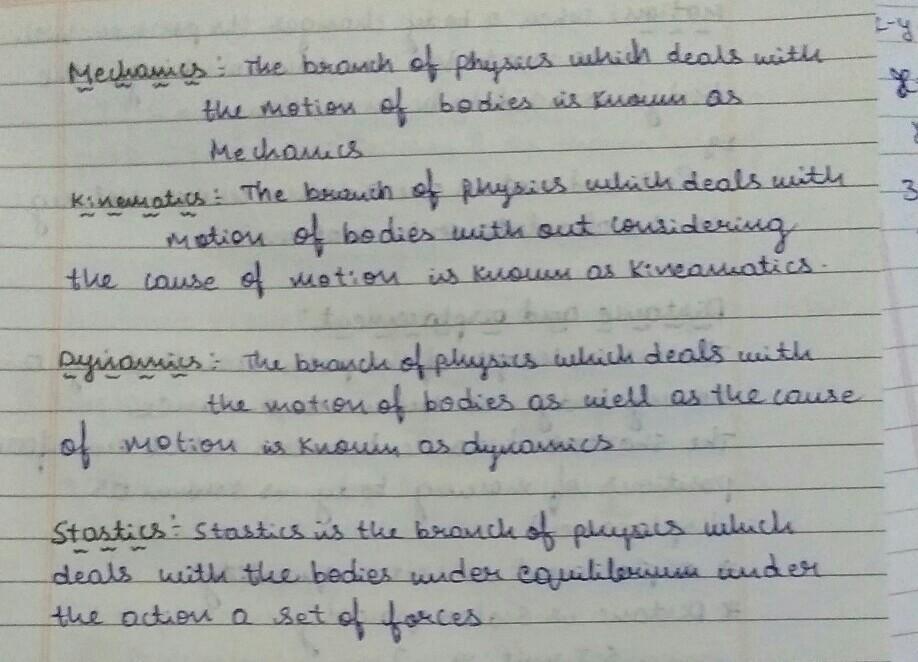 Mechanics : The branch of physics which deals with
the motion of bodies is known as
Mechanics
Kinematics : The branch of physics which deals with
motion of bodies with out considering
the cause of motion is known as Kineamatics.
Dynamics : The branch of physics which deals with
the motion of bodies as well as the cause
of motion is known as dynamics
Stastics : Stastics is the branch of physics which
deals with the bodies under equilibrium under
the action a set of forces.